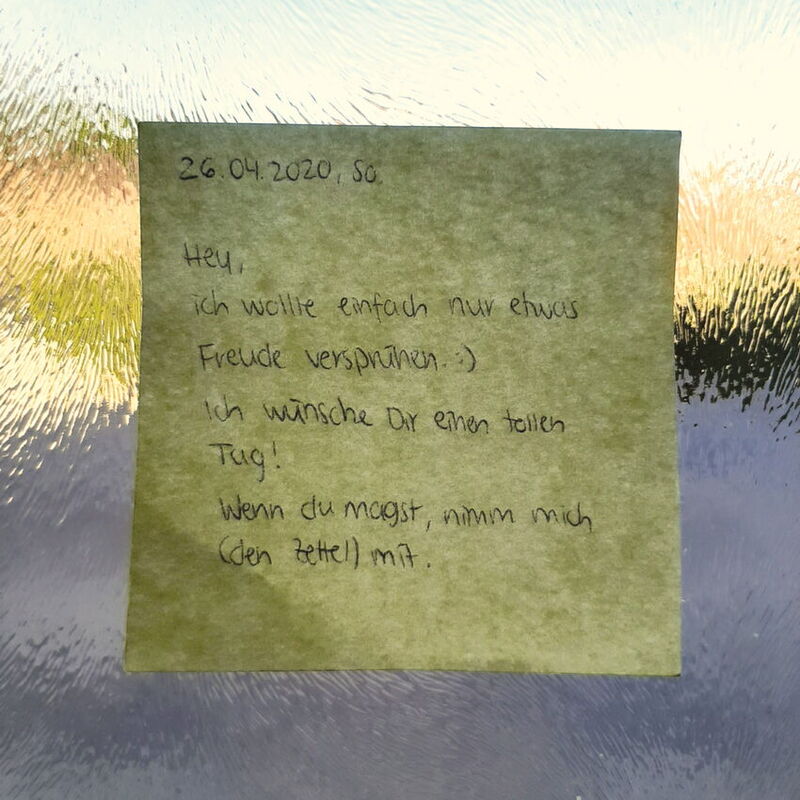 26.04.2020, So.
Hey,
ich wollte einfach nur etwas
Freude versprühen. :)
Ich wünsche Dir einen tollen
Tag!
Wenn du magst, nimm mich
(den Zettel) mit.